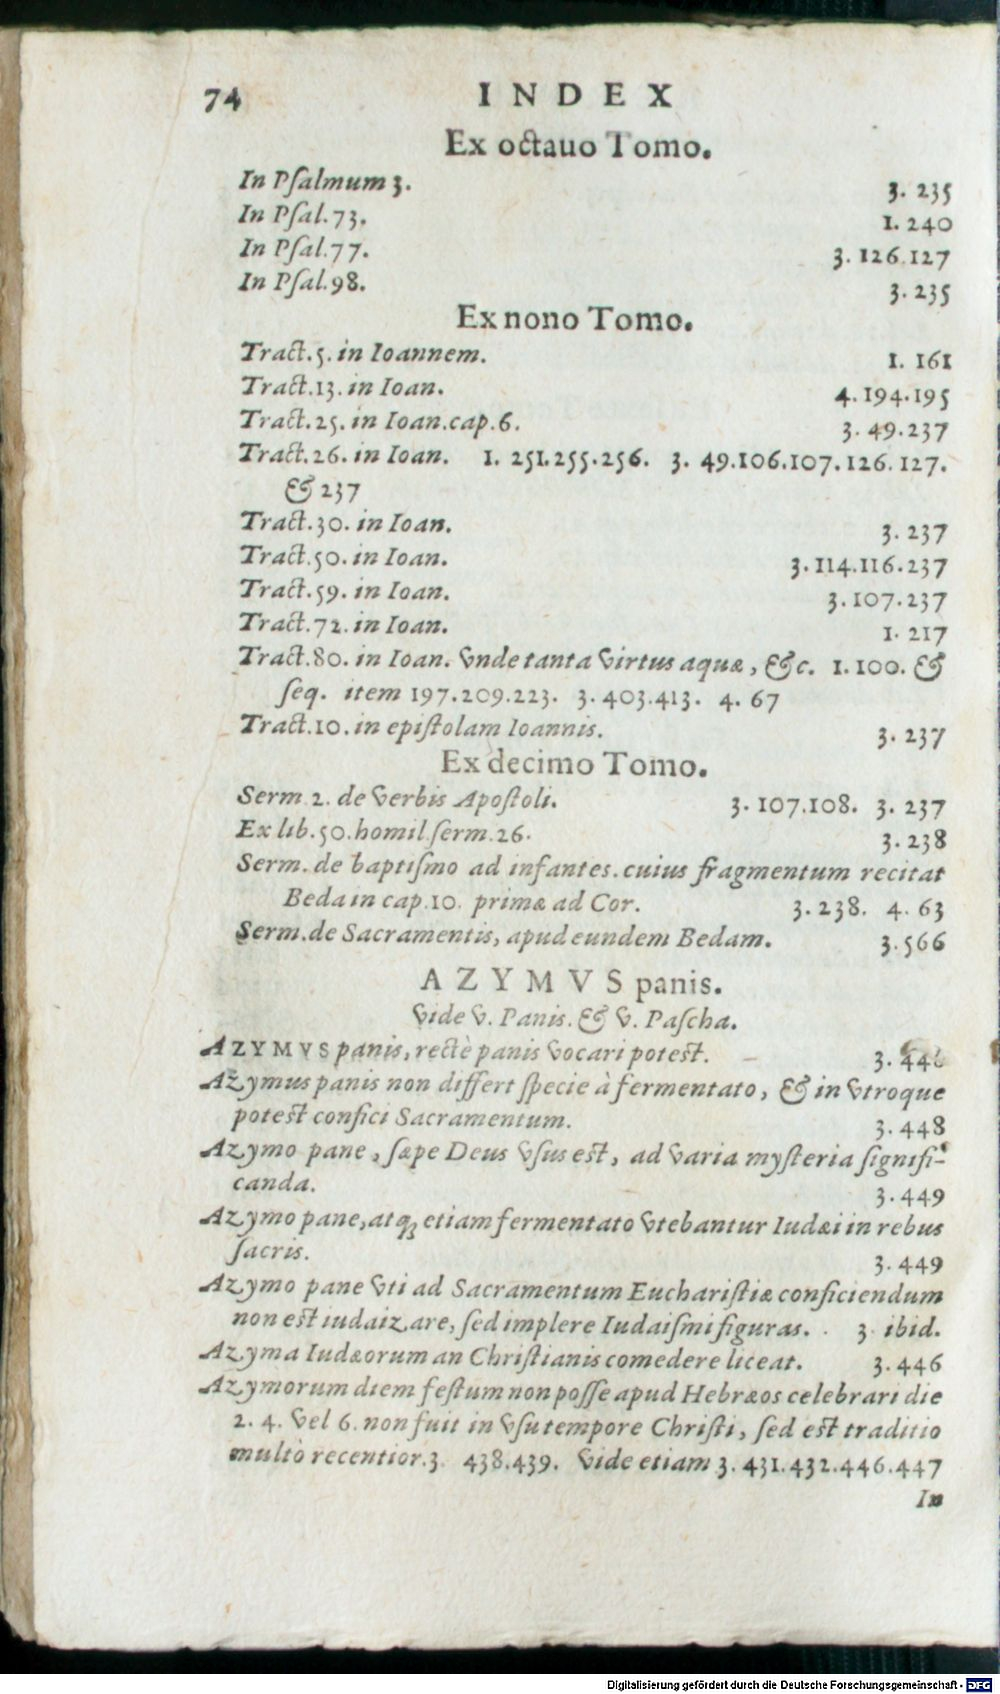 74 INDEX
Ex octauo Tomo.
In Pſalmum 3. 3. 235
In Pſal.73. 1. 240
In Pſal.77. 3. 126.127
In Pſal.98. 3. 235
Ex nono Tomo.
Tract.5. in Ioannem. 1. 161
Tract.13. in Ioan. 4. 194.195
Tract.25. in Ioan.cap.6. 3. 49.237
Tract.26. in Ioan. 1. 251.255.256. 3. 49.106.107.126.127.
& 237
Tract.30. in Ioan. 3. 237
Tract.50. in Ioan. 3. 114.116.237
Tract.59. in Ioan. 3. 107.237
Tract.72. in Ioan. 1. 217
Tract.80. in Ioan. vnde tanta virtus aquæ, &c. 1. 100. &
ſeq. item 197.209.223. 3. 403.413. 4. 67
Tract.10. in epiſtolam Ioannis. 3. 237
Ex decimo Tomo.
Serm 2. de verbis Apoſtoli. 3. 107.108. 3. 237
Ex lib.50.homil.ſerm.26. 3. 238
Serm. de baptiſmo ad infantes. cuius fragmentum recitat
Beda in cap.10. primæ ad Cor. 3. 238. 4. 63
Serm.de Sacramentis, apud eundem Bedam. 3. 566
AZYMVS panis.
vide v. Panis. & v. Paſcha.
AZYMVS panis, rectè panis vocari poteſt. 3.
Azymus panis non differt ſpecie à fermentato, & in vtroque
poteſt confici Sacramentum. 3. 448
Azymo pane, ſæpe Deus vſus eſt, ad varia myſteria ſignifi-
canda. 3. 449
Azymo pane, atq; etiam fermentato vtebantur Iudæi in rebus
ſacris. 3. 449
Azymo pane vti ad Sacramentum Euchariſtiæ conficiendum
non eſt iudaizare, ſed implere Iudaiſmi figuras. 3 ibid.
Azyma Iudæorum an Chriſtianis comedere liceat. 3. 446
Azymorum diem feſtum non poſſe apud Hebræos celebrari die
2. 4. vel 6. non fuit in vſu tempore Chriſti, ſed eſt traditio
multò recentior. 3. 438.439. vide etiam 3. 431.432.446.447
In
Digitalisierung gefördert durch die Deutsche Forschungsgemeinschaft - DFG